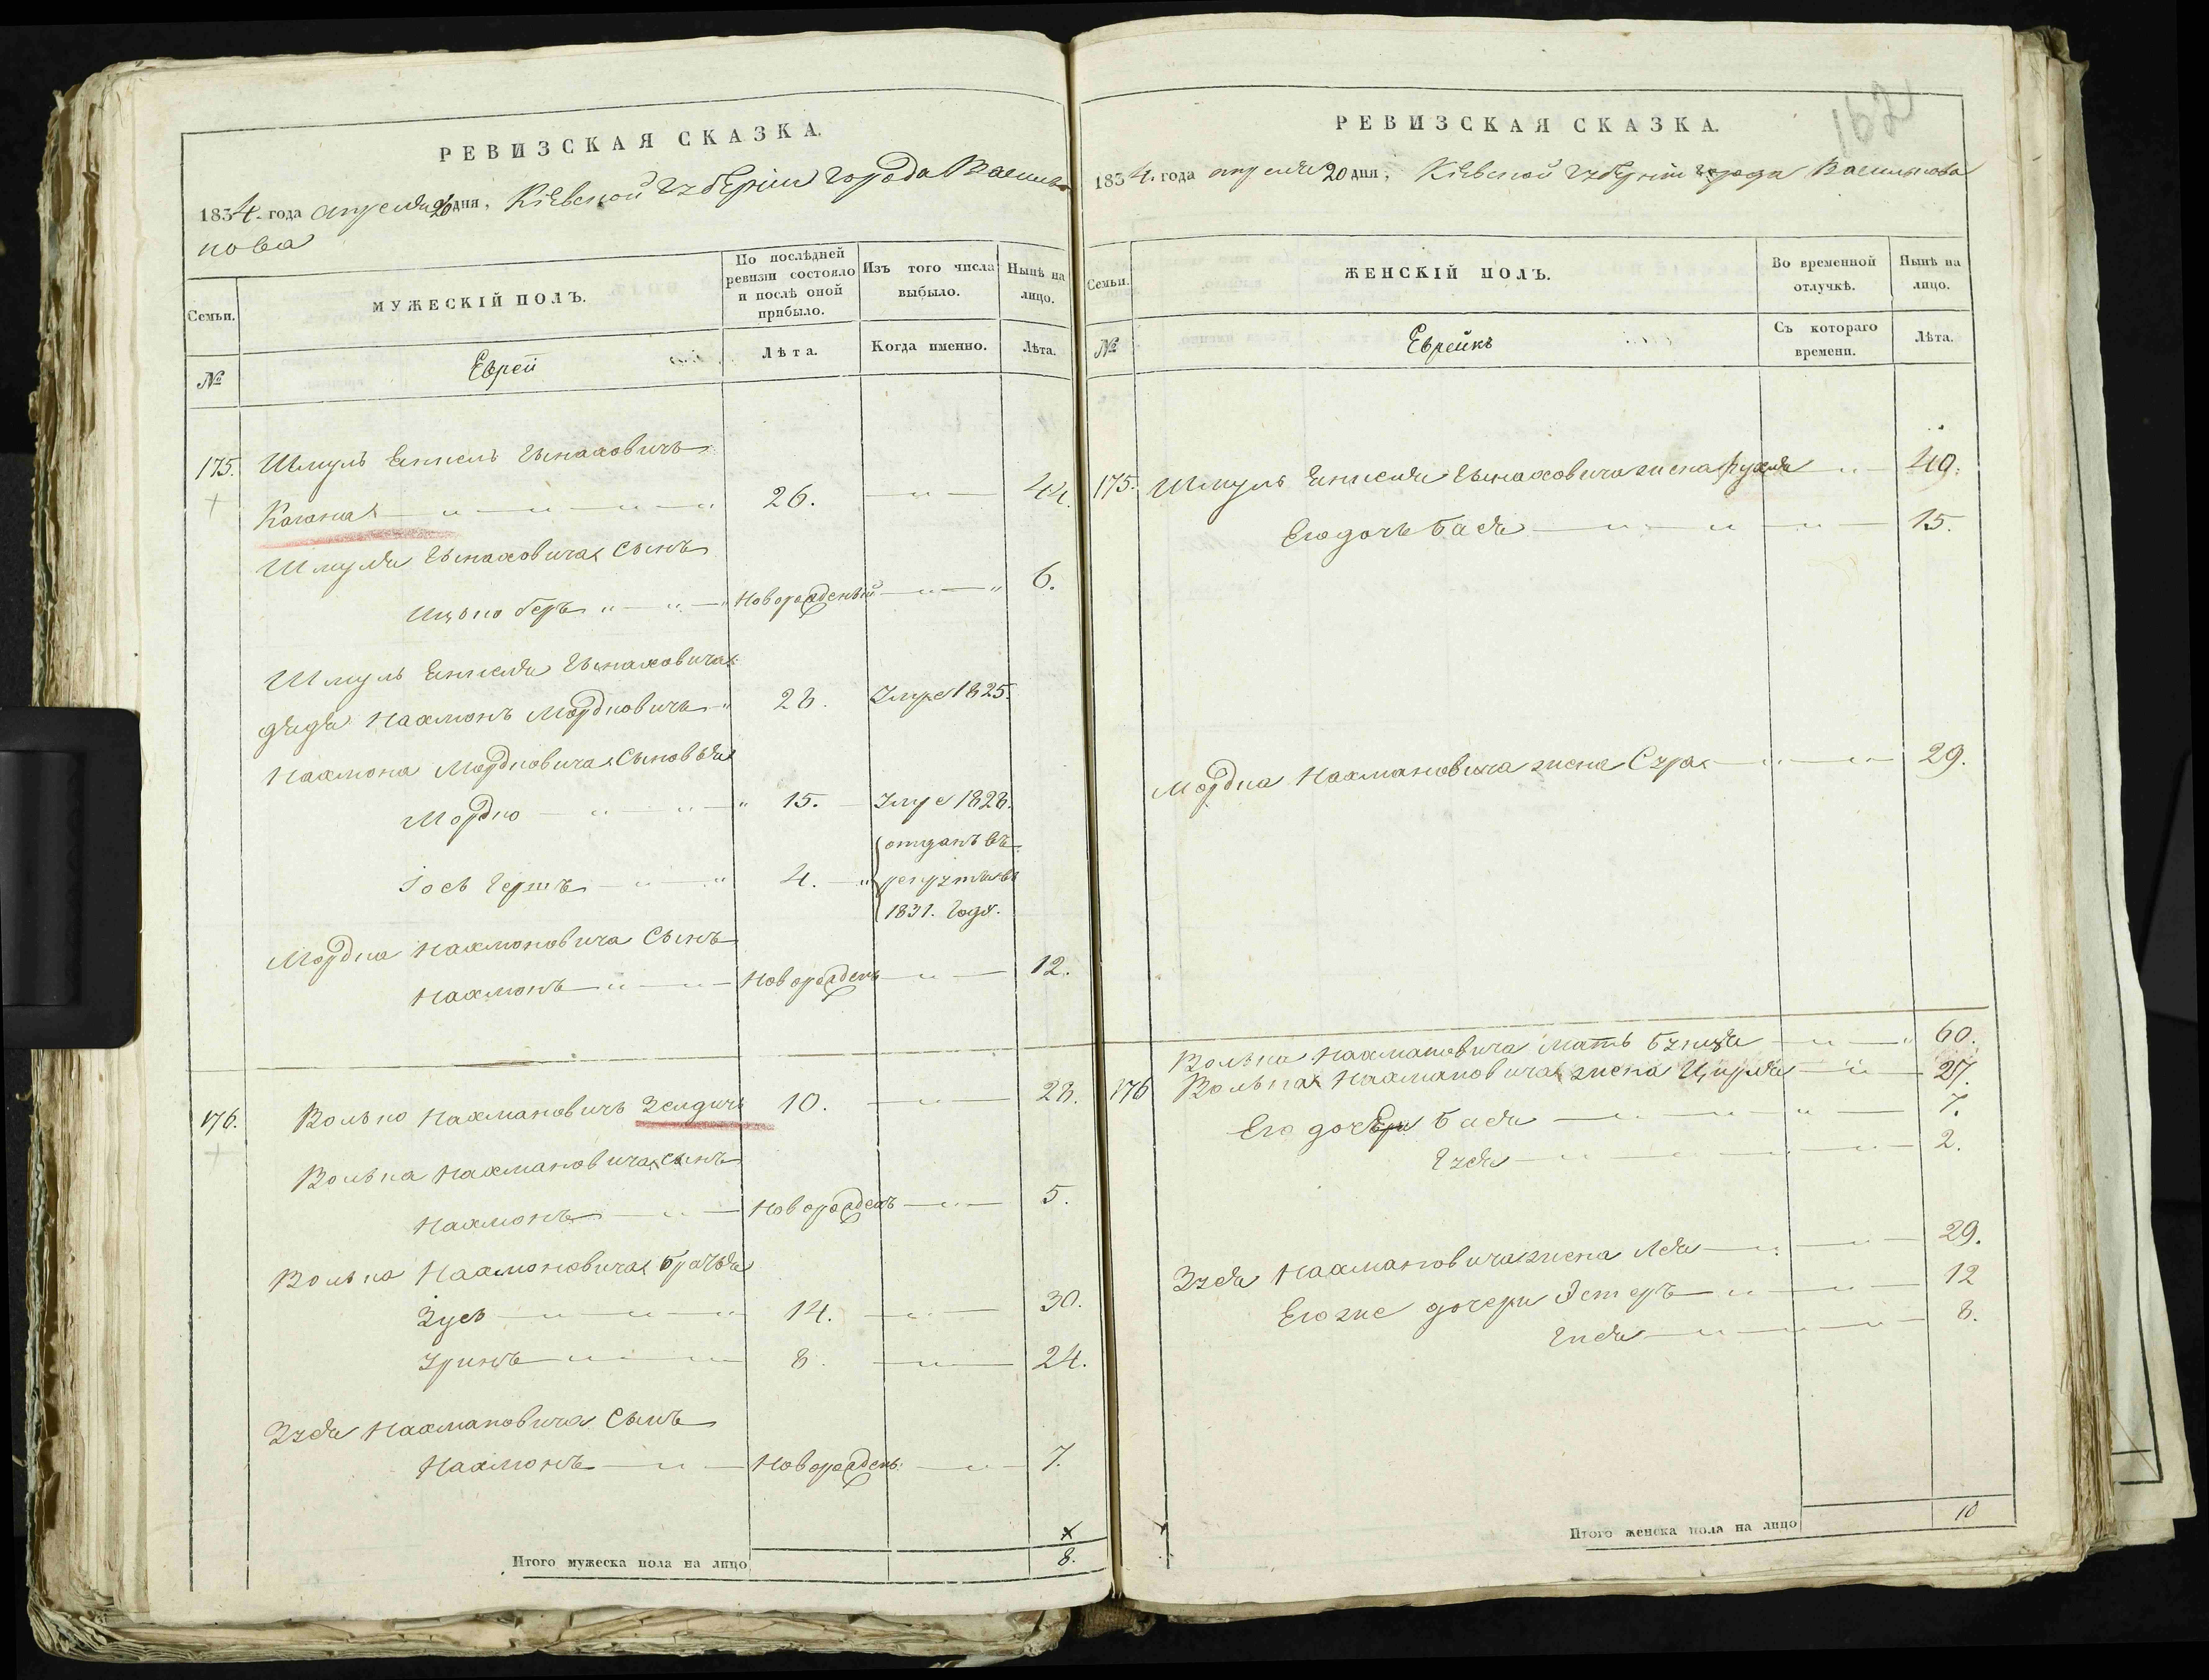 РЕВИЗСКАЯ СКАЗКА.
1834. года апреля 20 дня, Кіевской губерніи города Василь
кова
Семьи.
МУЖЕСКІЙ ПОЛЪ.
По послѣдней ревизіи состояло и послѣ оной прибыло.
Изъ того числа выбыло.
Нынѣ на лицо.
№
Еврей
Лѣта.
Когда именно.
Лѣта.
175. Шмуль Гынаховичъ
Когана 26. 44.
Шмуля Гынаховича Сынъ
Ицько беръ Новорожденый 6.
Шмуль Гынаховича
дядя Нахмонъ Мордковичъ 28. Умре 1825.
Нахмона Мордковича Сыновья
Мордко 15. Умре 1828.
Іось Гершъ 4. отданъ въ
рекруты въ
1831. Году.
Мордка Нахмоновича Сынъ
Нахмонъ Новорожденъ 12.
176. Волько Нахмановичъ Зелдичъ 10. 28.
Волька Нахмановича сынъ
Нахмонъ Новорожденъ 5.
Волька Нахмоновича Братья
Зусь 14. 30.
8. 24.
Зуся Нахмановича Сынъ
Нахмонъ Новорожденъ. 7.
Итого мужеска пола на лицо 8.
162
РЕВИЗСКАЯ СКАЗКА.
1834. года апреля 20 дня, Кіевской губерніи города Василькова
Семьи.
ЖЕНСКІЙ ПОЛЪ.
Во временной отлучкѣ.
Нынѣ на лицо.
№
Еврейкъ
Съ котораго времени.
Лѣта.
175. Шмуль Гынаховича жена Рухля 40.
Его дочь Бася 15.
Мордка Нахмановича жена Сура 29.
Волька Нахмановича Мать 60.
176 Волька Нахмановича жена Цирля 27.
Его дочери Бася 7.
2.
Зуся Нахмановича жена Лея 29.
Его же дочери Эстеръ 12
8.
Итого женска пола на лицо 10